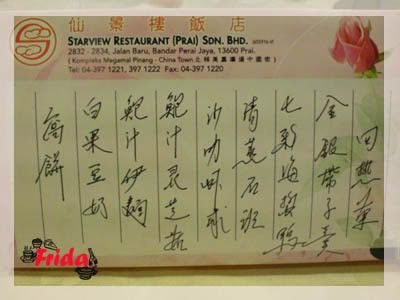 仙景樓飯店
STARVIEW RESTAURANT (PRAI) SDN. BHD.
2832 - 2834, Jalan Baru, Bandar Perai Jaya, 13600 Prai.
( Kompleks Megamal Pinang - China Town 北賴美嘉廣場中國街 )
Tel: 04-397 1221, 397 1222 Fax: 04-397 1220
四热葷
金銀帶子羹
七彩海蜇鴨
清蒸石班
沙叻虾球
鮑汁灵芝菇
鮑汁伊麵
白果豆奶
窩餅
Frida